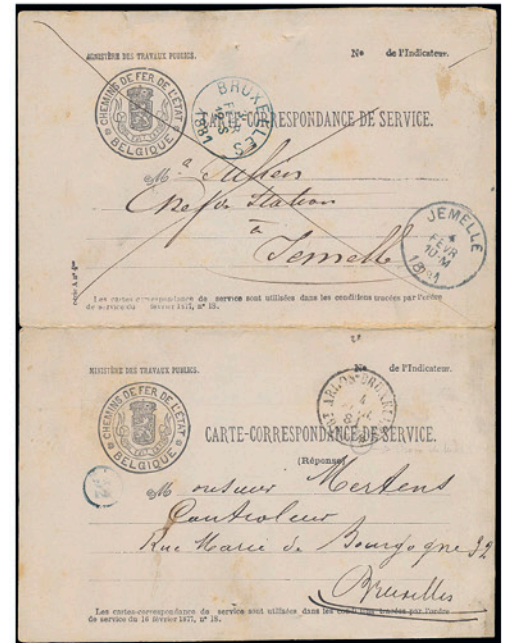 MINISTÈRE DES TRAVAUX PUBLICS.
No de l'Indicateur.
CHEMINS DE FER DE L'ÉTAT
BELGIQUE
BRUXELLES
1881
CARTE-CORRESPONDANCE DE SERVICE.
Mr
Chef de Station
à
Jemelle
JEMELLE
4
FÉVR
10-M
1881
Les cartes-correspondance de service sont utilisées dans les conditions tracées par l'ordre
de service du février 1877, n° 18.
MINISTÈRE DES TRAVAUX PUBLICS.
No de l'Indicateur.
CHEMINS DE FER DE L'ÉTAT
BELGIQUE
4
CARTE-CORRESPONDANCE DE SERVICE.
(Réponse)
Monsieur Mertens
Controleur
Rue Marie de Bourgogne 32
Bruxelles
Les cartes-correspondance de service sont utilisées dans les conditions tracées par l'ordre
de service du 16 février 1877, n° 18.